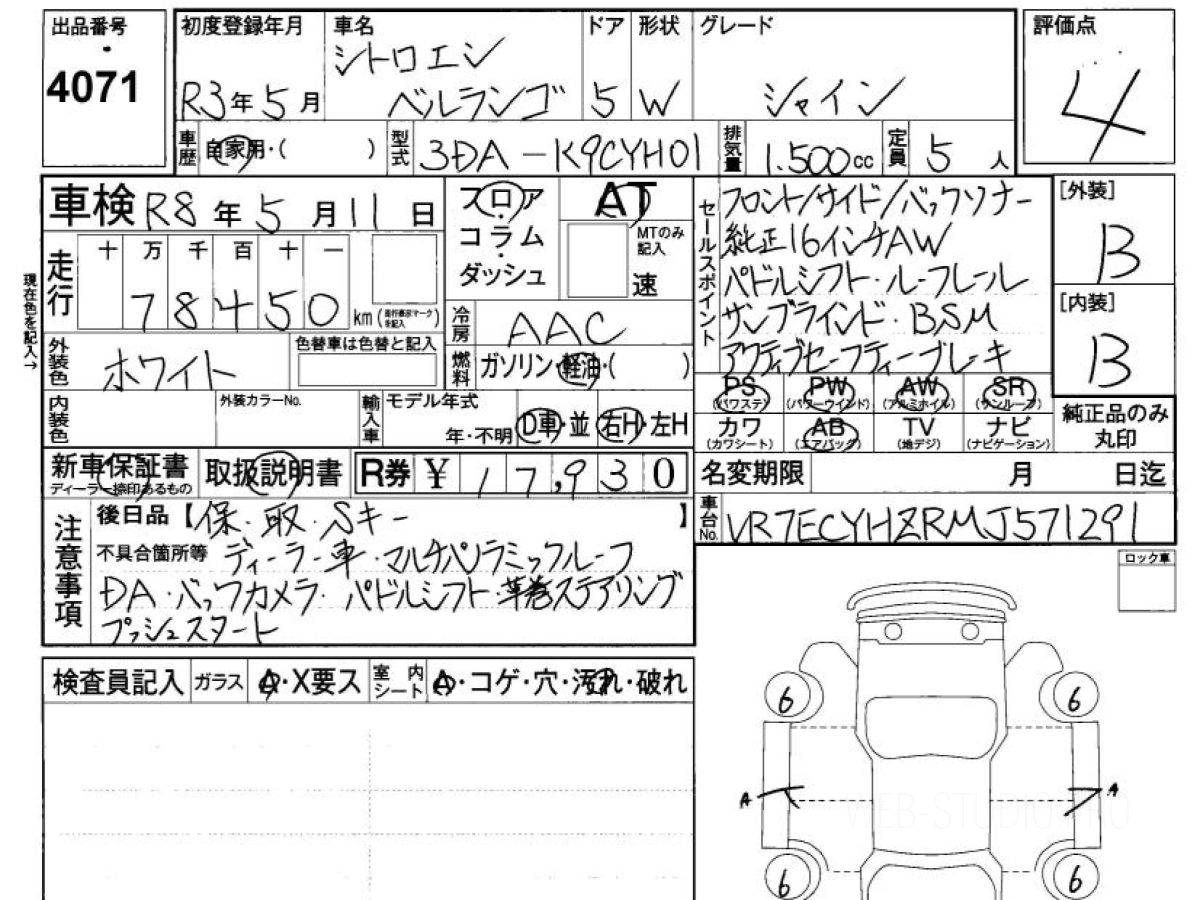 出品番号
4071
初度登録年月 車名 ドア 形状 グレード
シトロエン
R3年5月 ベルランゴ 5 W シャイン
車歴 自家用・( ) 型式 3DA-K9CYH01 排気量 1.500cc 定員 5人
評価点
4
車検 R8年5月11日
走行 十 万 千 百 十 一
78450 km(走行表示マークを記入)
現在色を記入→
外装色 ホワイト 色替車は色替と記入
フロア AT
コラム MTのみ記入
ダッシュ 速
冷房 AAC
燃料 ガソリン・軽油・( )
セールスポイント
フロント/サイド/バックソナー
純正16インチAW
パドルシフト・ルーフレール
サンブラインド・BSM
アクティブセーフティーブレーキ
[外装]
B
[内装]
B
内装色 外装カラーNo. 輸入車 モデル年式
年・不明 D車・並 右H・左H
PS PW AW SR
(パワステ) (パワーウインド) (アルミホイル) (サンルーフ)
カワ AB TV ナビ
(カワシート) (エアバッグ) (地デジ) (ナビゲーション)
純正品のみ
丸印
新車保証書 取扱説明書 R券 ¥ 17,930
ディーラー捺印あるもの
名変期限 月 日迄
車台No. VR7ECYHZRMJ571291
注意事項
後日品【保・取・Sキー 】
不具合箇所等 ディーラー車・マルチパノラミックルーフ
DA・バックカメラ・パドルシフト・革巻ステアリング
プッシュスタート
ロック車
検査員記入 ガラス A・X要ス 室内シート A・コゲ・穴・汚れ・破れ
6 6
A A
WEB-STUDIO.PRO
6 6